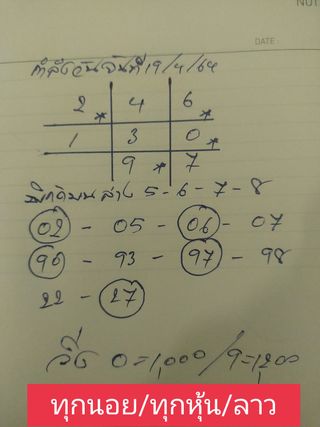 DATE
กำลังวันจันทร์ 19/4/64
2 * 4 6 *
1 3 0 *
9 * 7
บน ล่าง 5-6-7-8
02 - 05 - 06 - 07
96 - 93 - 97 - 98
22 - 27
วิ่ง 0=1,000/9=1,200
ทุกนอย/ทุกหุ้น/ลาว